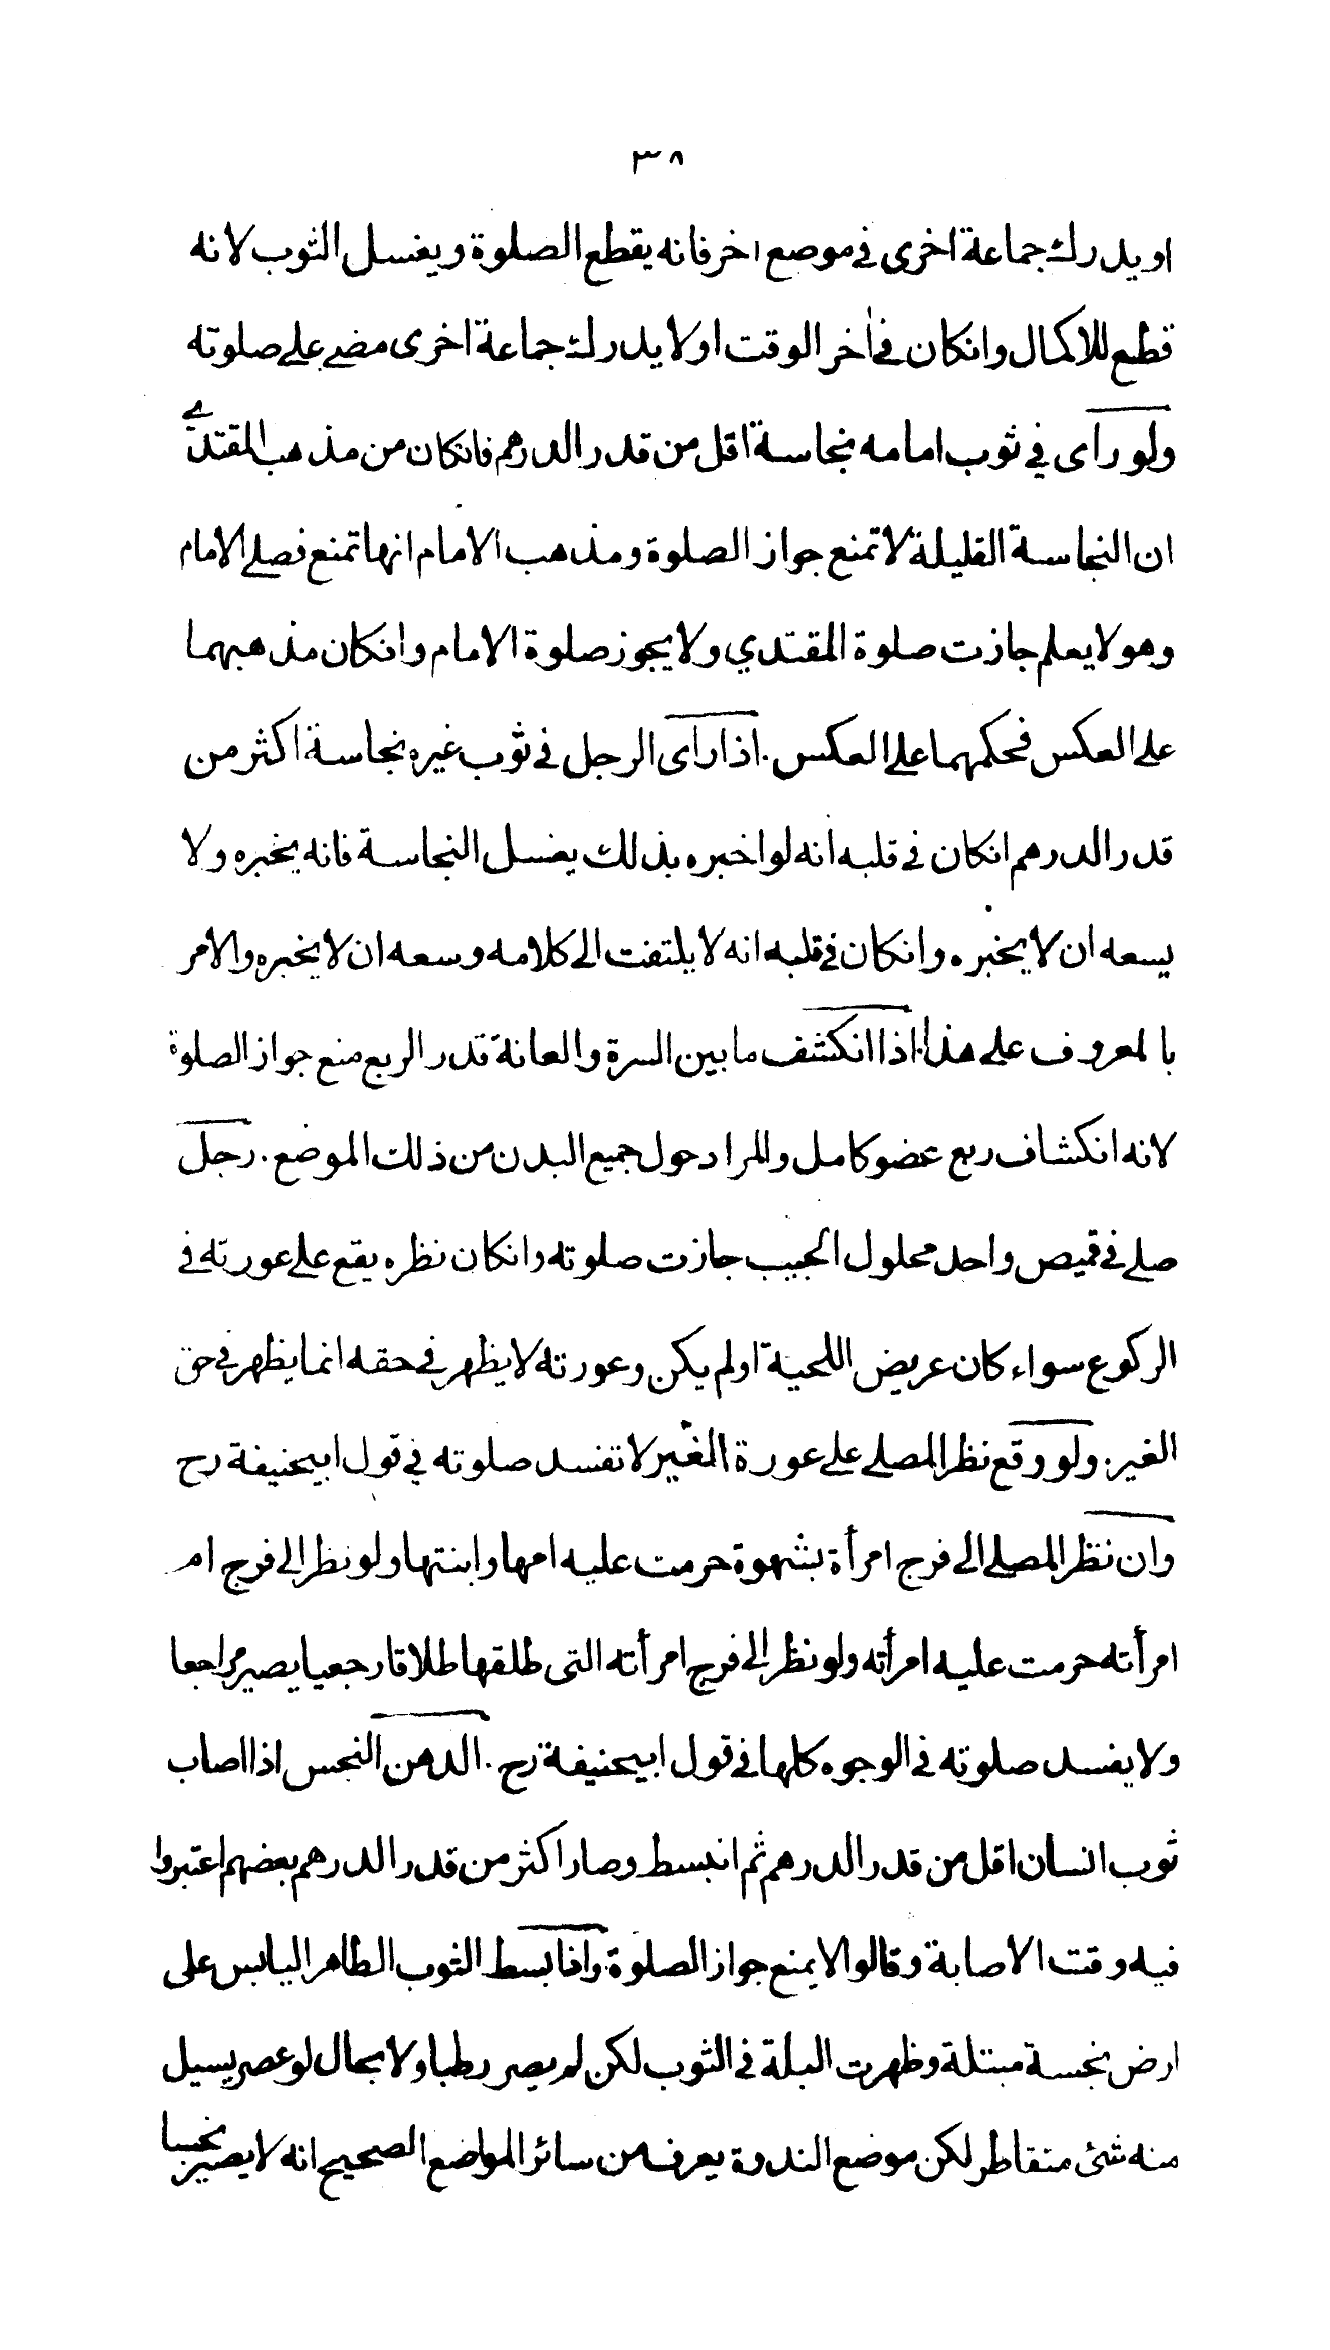 ٣٨
او يدرك جماعة اخرى في موضع اخر فانه يقطع الصلوة ويغسل الثوب لانه
قطع للاكمال وانكان في آخر الوقت او لا يدرك جماعة اخرى مضى على صلوته
ولو رأى في ثوب امامه نجاسة اقل من قدر الدرهم فانكان من مذهب المقتدي
ان النجاسة القليلة لا تمنع جواز الصلوة ومذهب الامام انها تمنع فصلى الامام
وهو لا يعلم جازت صلوة المقتدي ولا يجوز صلوة الامام وانكان مذهبهما
على العكس فحكمهما على العكس . اذا رأى الرجل في ثوب غيره نجاسة اكثر من
قدر الدرهم انكان في قلبه انه لو اخبره بذلك يغسل النجاسة فانه يخبره ولا
يسعه ان لا يخبره وانكان في قلبه انه لا يلتفت الى كلامه وسعه ان لا يخبره والامر
بالمعروف على هذا . اذا انكشف ما بين السرة والعانة قدر الربع منع جواز الصلوة
لانه انكشاف ربع عضو كامل والمراد حول جميع البدن من ذلك الموضع . رجل
صلى في قميص واحد محلول الجيب جازت صلوته وانكان نظره يقع على عورته في
الركوع سواء كان عريض اللحية او لم يكن وعورته لا يظهر في حقه انما يظهر في حق
الغير . ولو وقع نظر المصلي على عورة الغير لا تفسد صلوته في قول ابيحنيفة رح
وان نظر المصلي الى فرج امرأة بشهوة حرمت عليه امها وابنتها ولو نظر الى فرج ام
امرأته حرمت عليه امرأته ولو نظر الى فرج امرأته التى طلقها طلاقا رجعيا يصير مراجعا
ولا يفسد صلوته في الوجوه كلها في قول ابيحنيفة رح . الدهن النجس اذا اصاب
ثوب انسان اقل من قدر الدرهم ثم انبسط وصار اكثر من قدر الدرهم بعضهم اعتبروا
فيه وقت الاصابة وقالوا لا يمنع جواز الصلوة . واذا بسط الثوب الطاهر اليابس على
ارض نجسة مبتلة وظهرت البلة في الثوب لكن لم يصر رطبا ولا بحال لو عصر يسيل
منه شئ متقاطر لكن موضع الندوة يعرف من سائر المواضع الصحيح انه لا يصير نجسا